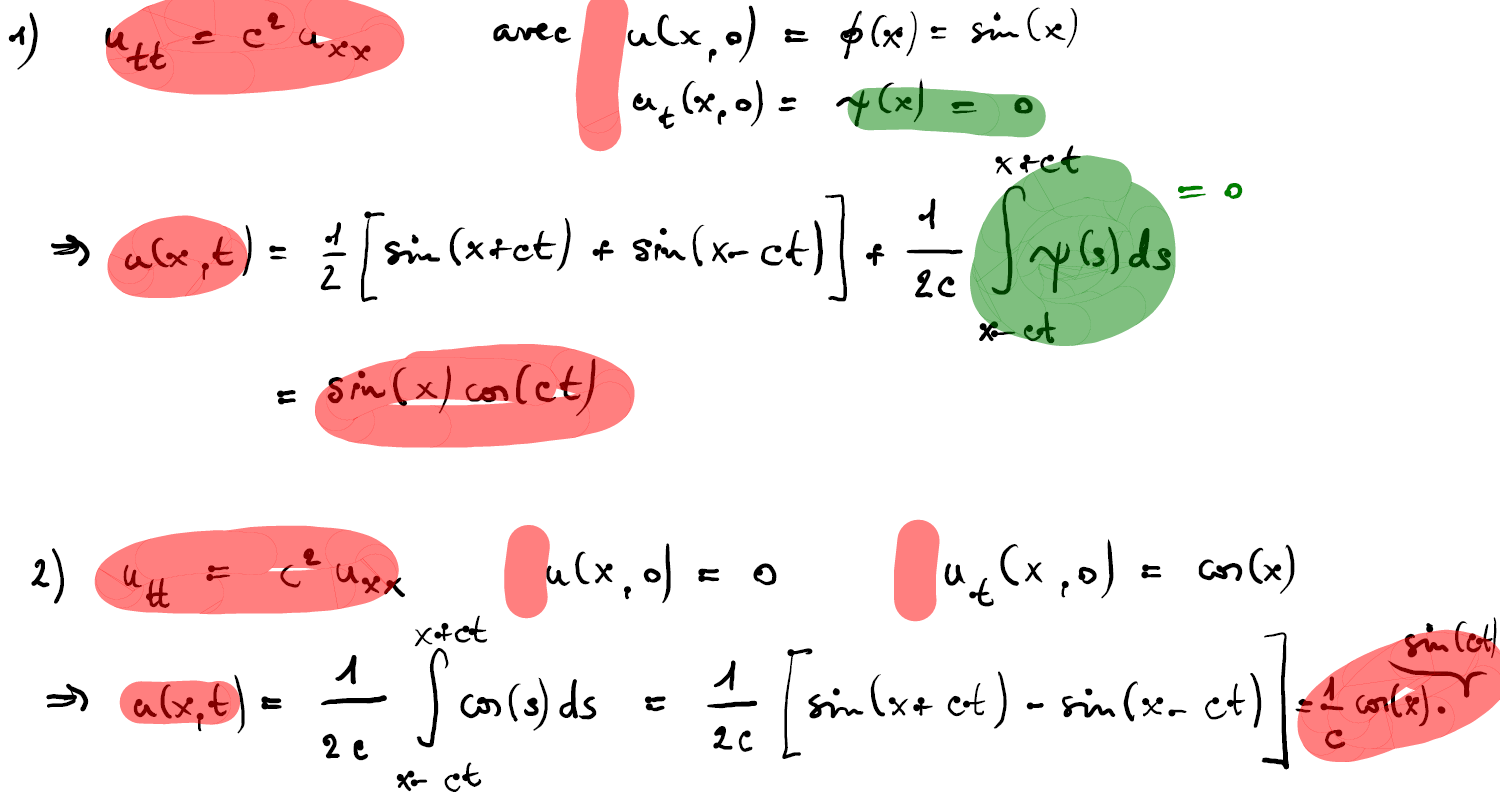 1) u_tt = c² u_xx avec u(x,0) = ϕ(x) = sin(x)
u_t(x,0) = ψ(x) = 0
⇒ u(x,t) = 1/2 [sin(x+ct) + sin(x-ct)] + 1/2c ∫_{x-ct}^{x+ct} ψ(s) ds = 0
= sin(x) cos(ct)
2) u_tt = c² u_xx u(x,0) = 0 u_t(x,0) = cos(x)
⇒ u(x,t) = 1/2c ∫_{x-ct}^{x+ct} cos(s) ds = 1/2c [sin(x+ct) - sin(x-ct)] = 1/c cos(x). sin(ct)